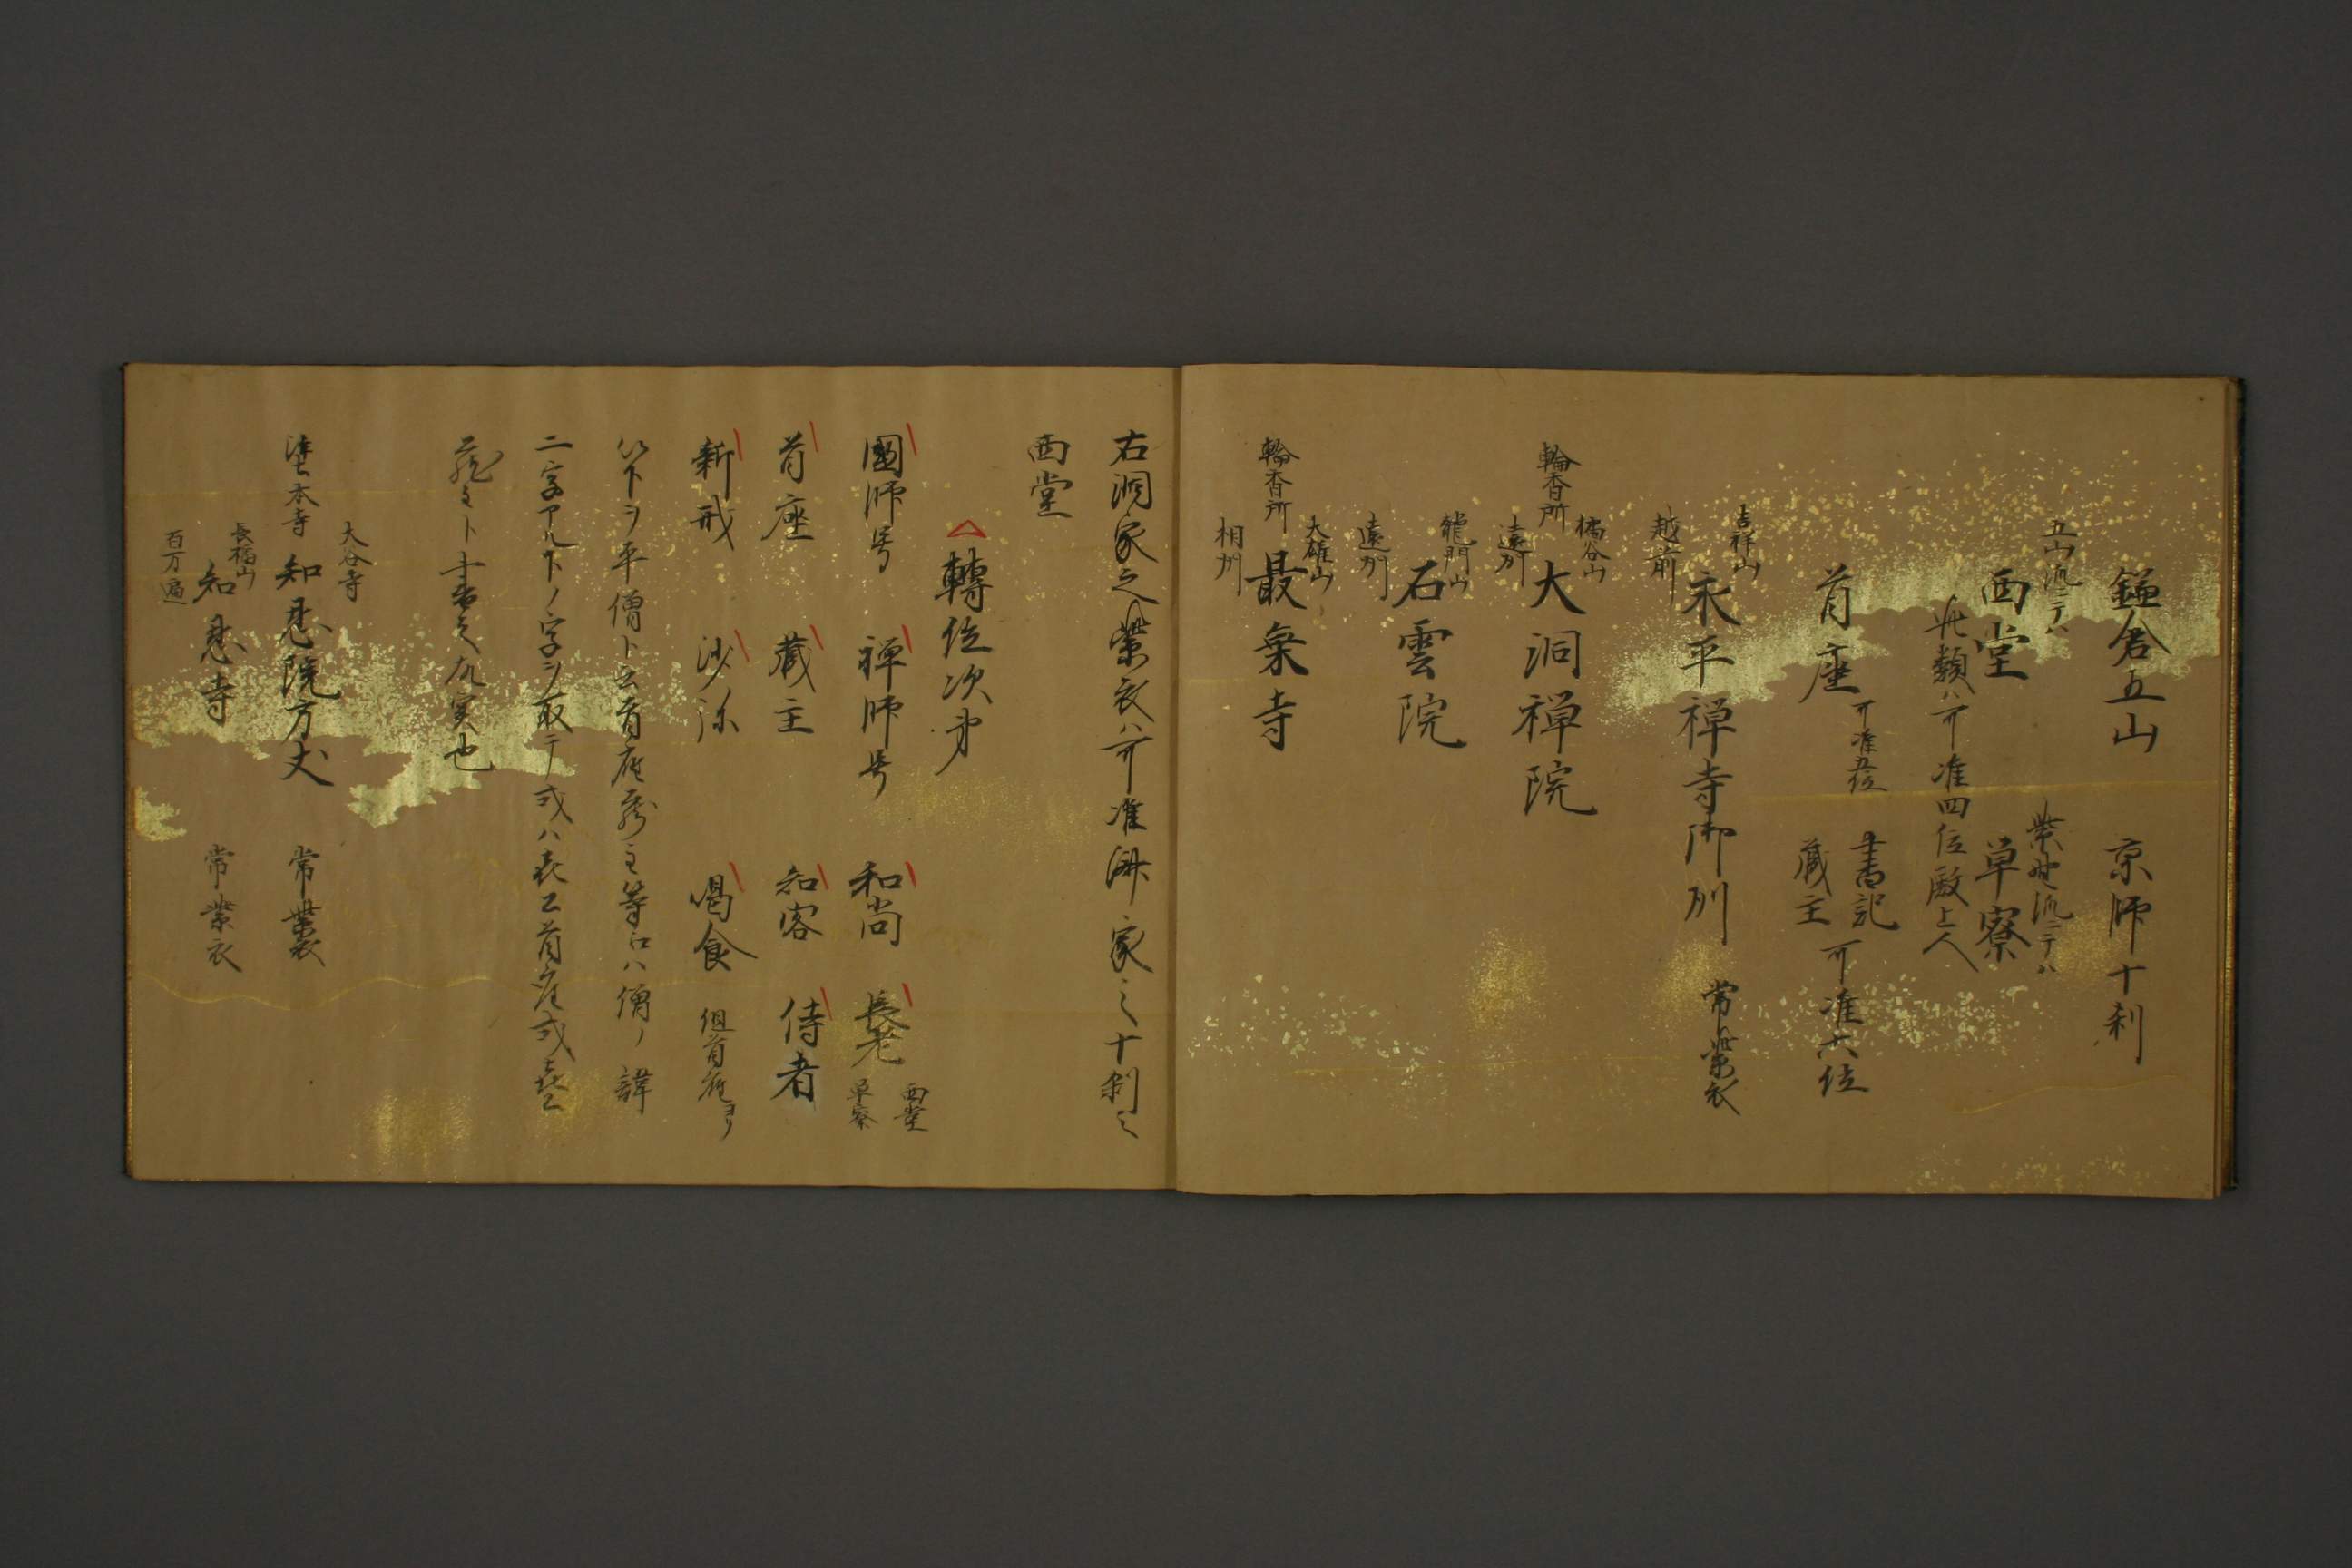 鎌倉五山　京師十刹
五山派ニテハ　紫野派ニテハ
西堂　単寮
此類ハ可准四位殿上人
首座　可准五位　書記　蔵主　可准六位
吉祥山
永平禅寺御判　常紫衣
越前
橘谷山
輪番所　大洞禅院
遠州
龍門山
石雲院
遠州
大雄山
輪番所　最乗寺
相州
右洞家之紫衣ハ可准済家之十刹之
西堂
△轉位次第
國師号　禅師号　和尚　長老　西堂　単寮
首座　蔵主　知客　侍者
新戒　沙弥　喝食　但首座ヨリ
以下ヲ平僧ト云首座蔵主等ニハ僧ノ諱
二字アル下ノ字ヲ取テ或ハ㐂乙首座或㐂乙
蔵主ト書之故実也
大谷寺
浄土本寺　知恩院方丈　常紫衣
長福山
知恩寺　常紫衣
百万遍